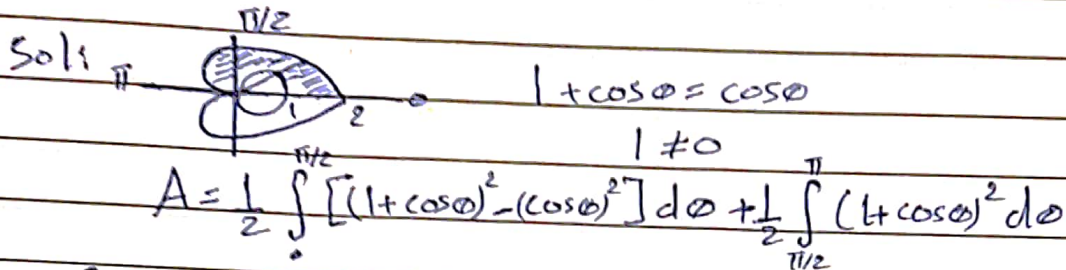 π/2
Sol:
π
1
2
0
1+cosθ = cosθ
1 ≠ 0
A = 1/2 ∫_0^{π/2} [(1+cosθ)² - (cosθ)²] dθ + 1/2 ∫_{π/2}^{π} (1+cosθ)² dθ